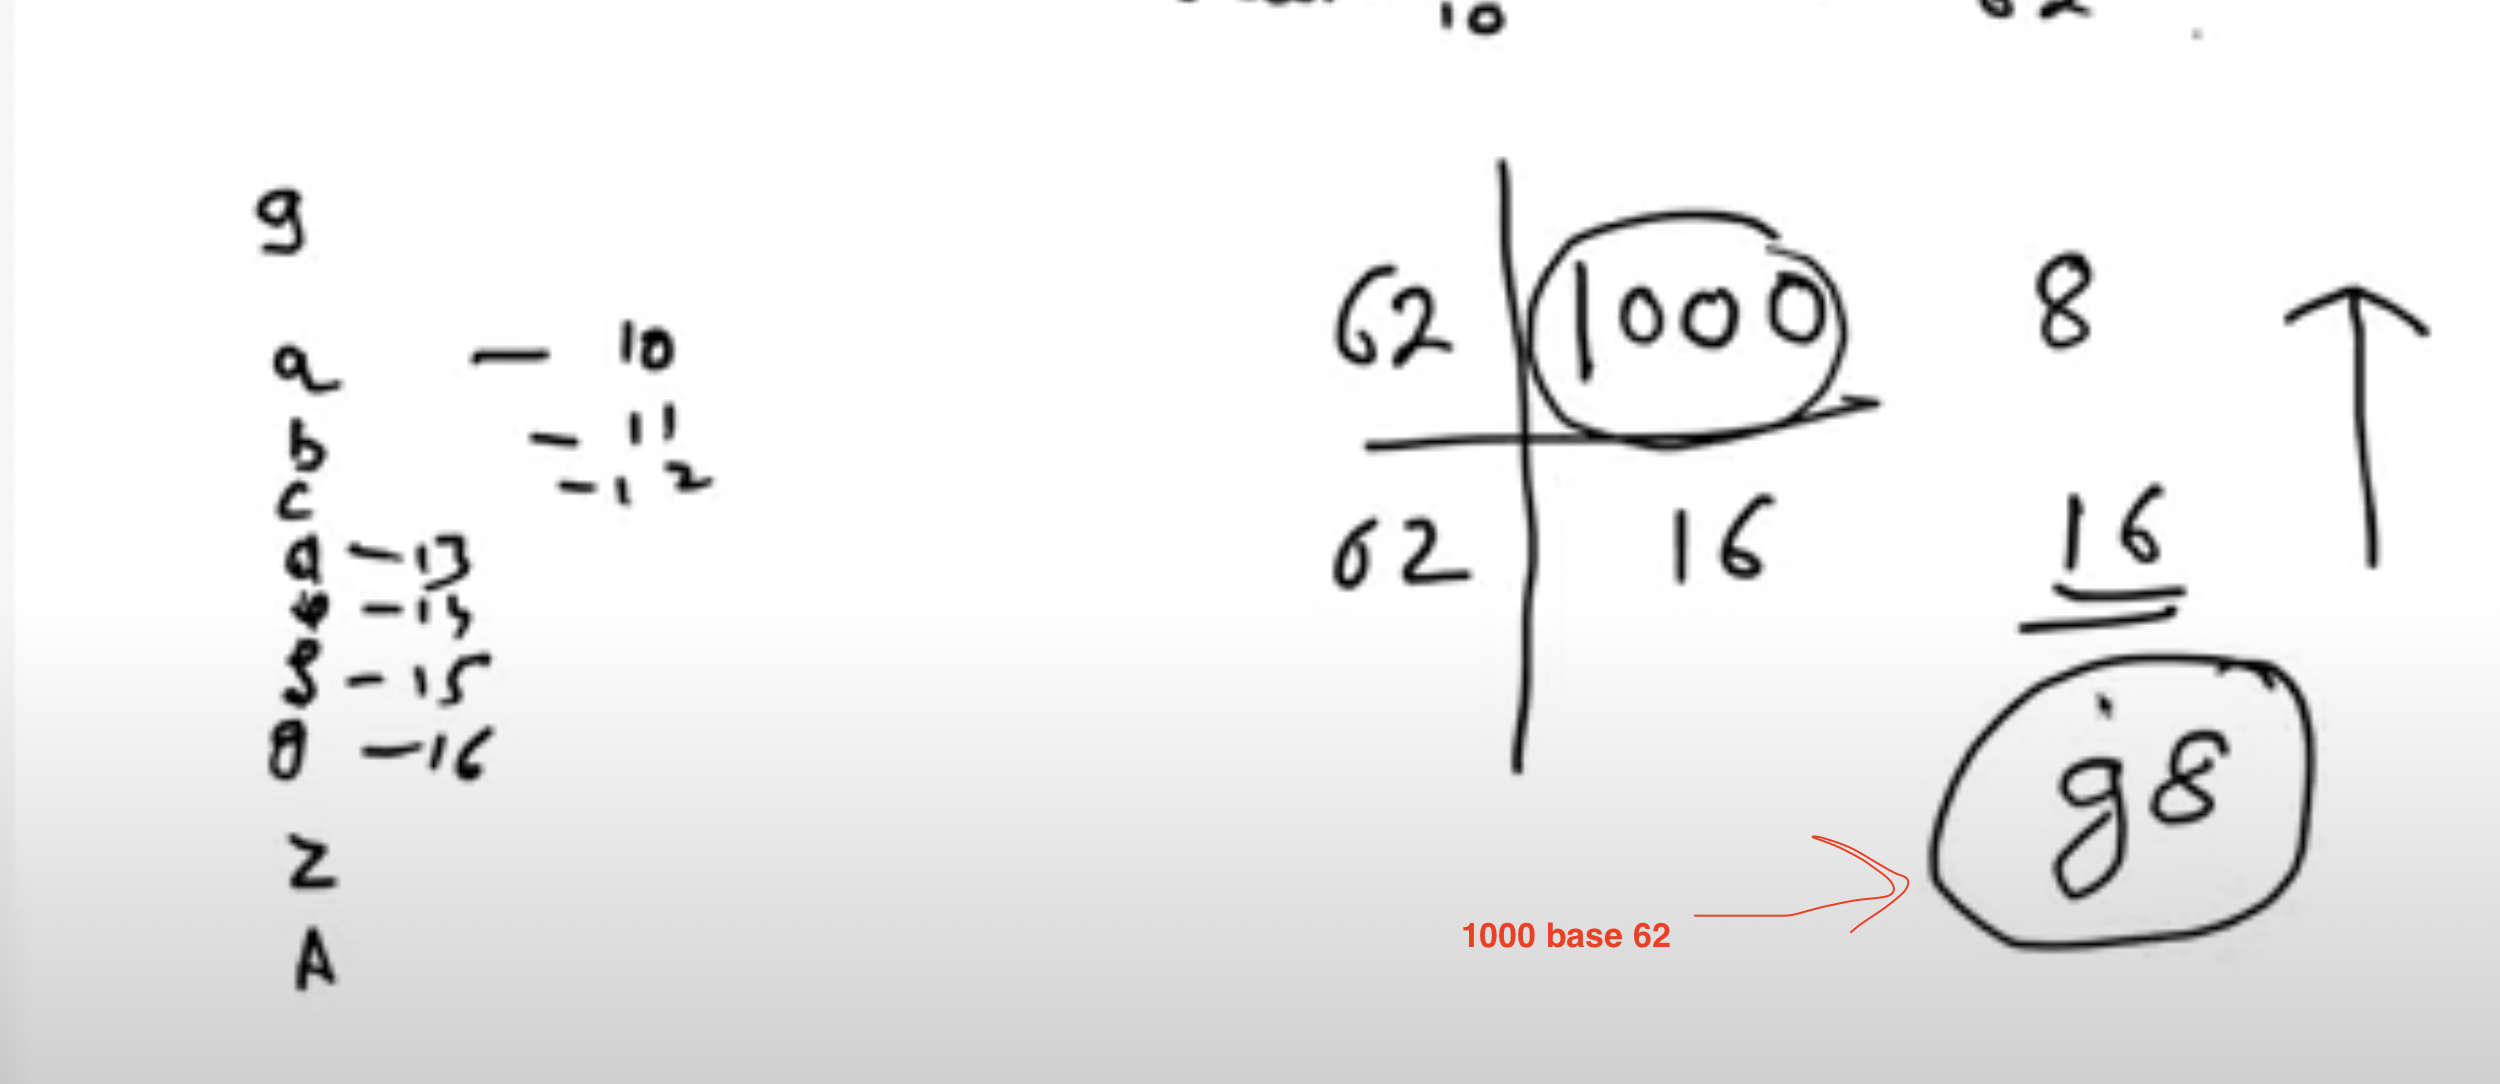 10
g
a — 10
b — 11
c — 12
d — 13
— 15
g — 16
z
A
62 1000 8
62 16 16
g8
1000 base 62